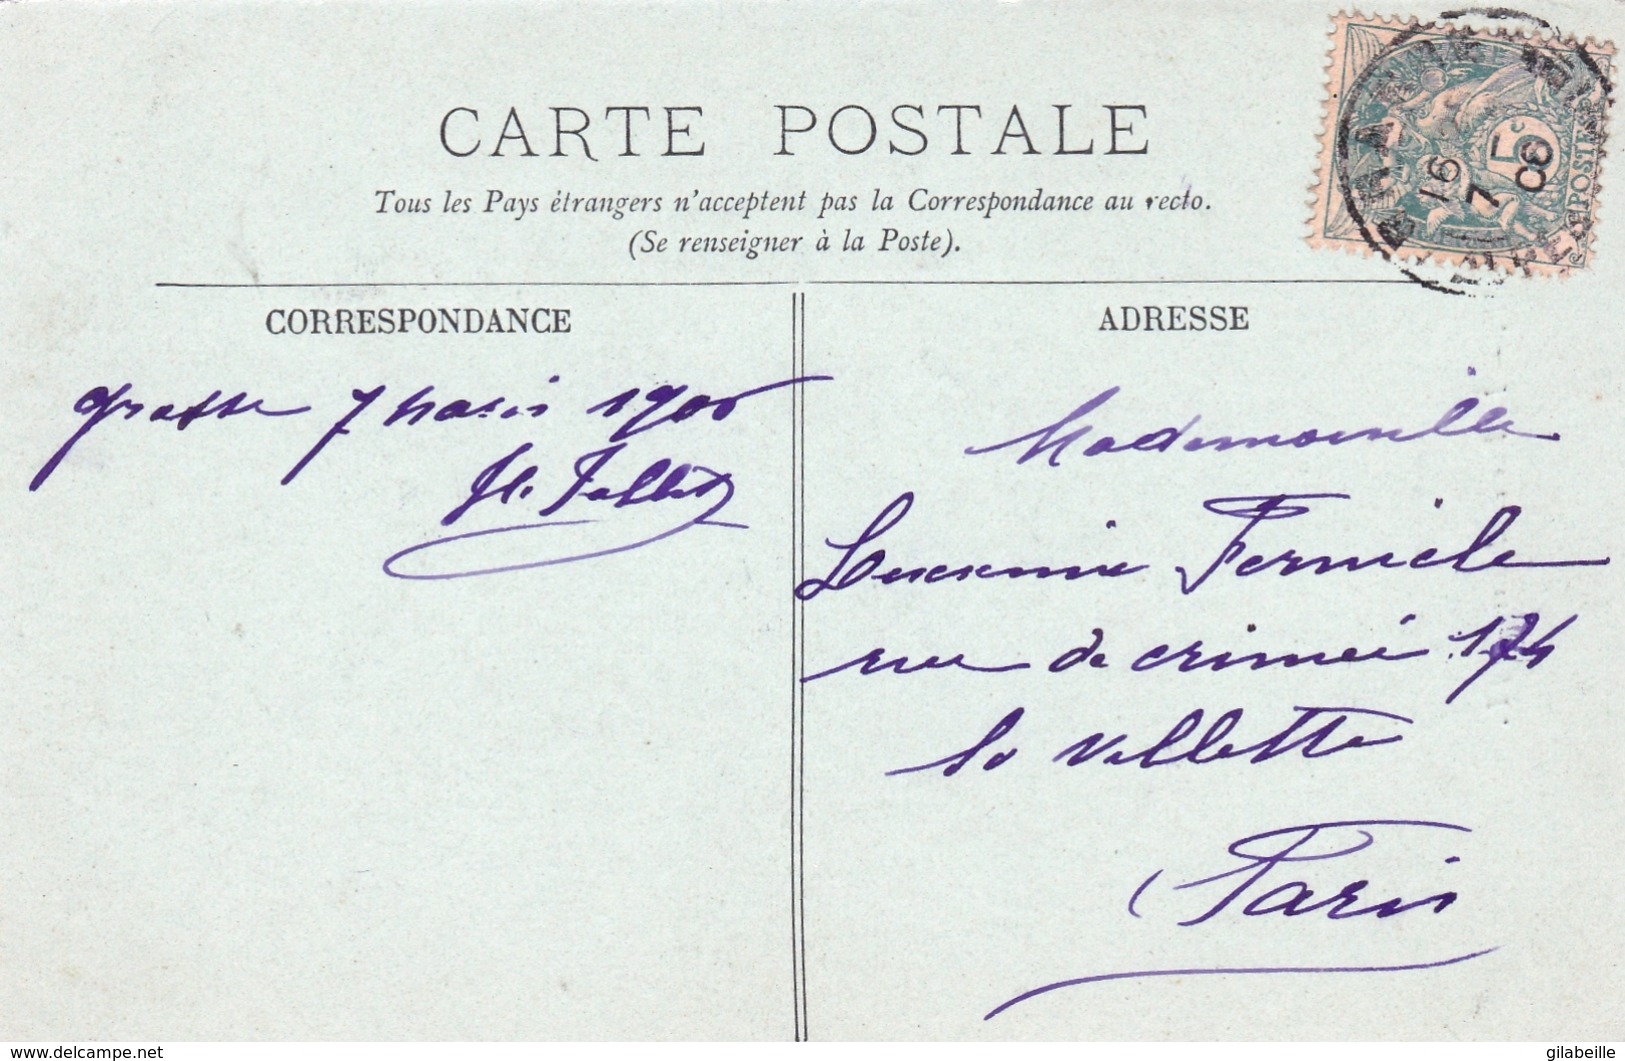 CARTE POSTALE
Tous les Pays étrangers n'acceptent pas la Correspondance au recto.
(Se renseigner à la Poste).
CORRESPONDANCE
ADRESSE
grasse 7 mars 1906
Mademoiselle
rue de crimée 174
la Villette
Paris
16
7
06
5c
POSTES
www.delcampe.net
gilabeille